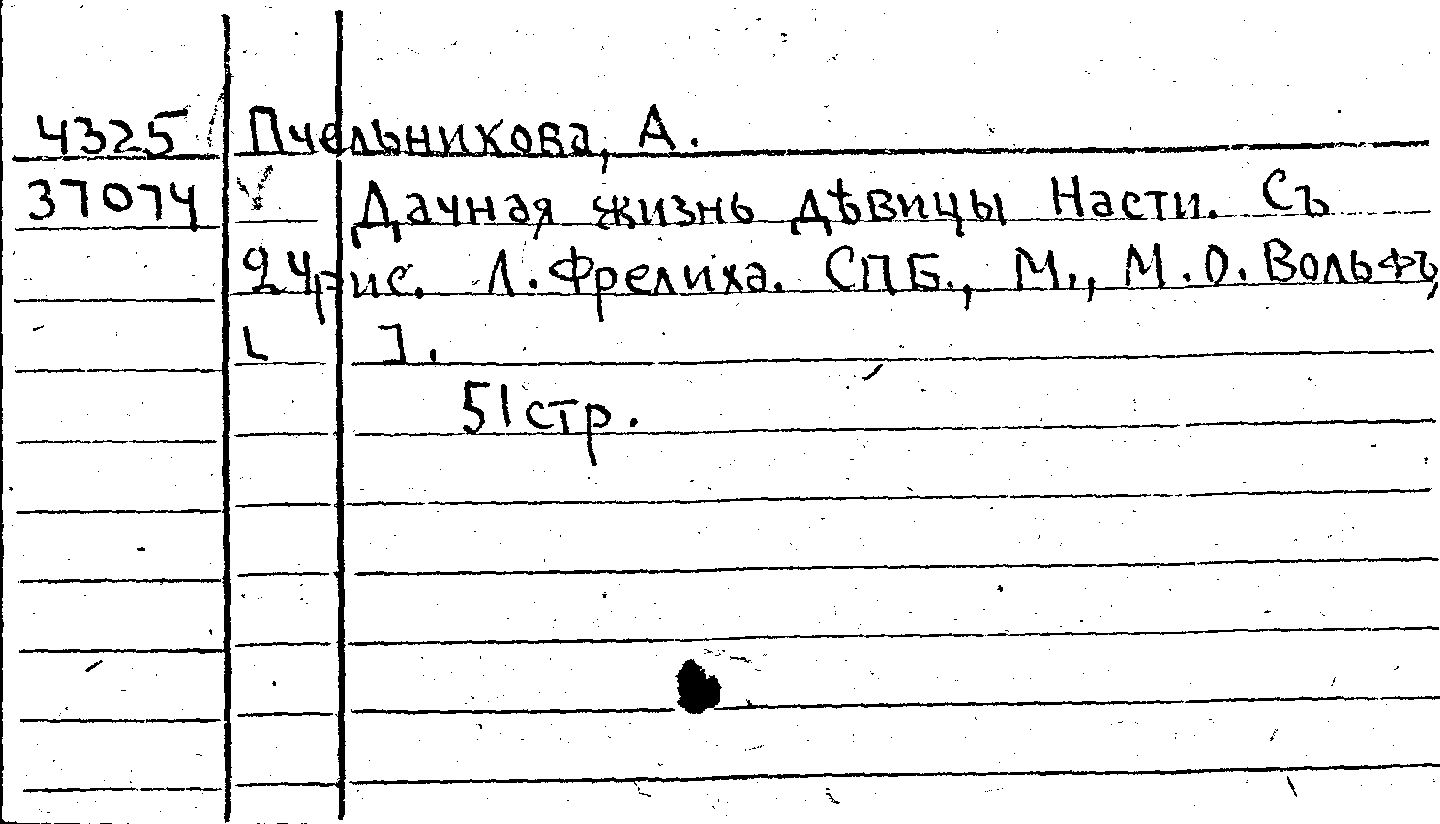 4325 Пчельникова, А.
37074 Дачная жизнь дѣвицы Насти. Съ
24 рис. Л. Фрелиха. СПБ., М., М.О. Вольфъ,
[ ].
51 стр.